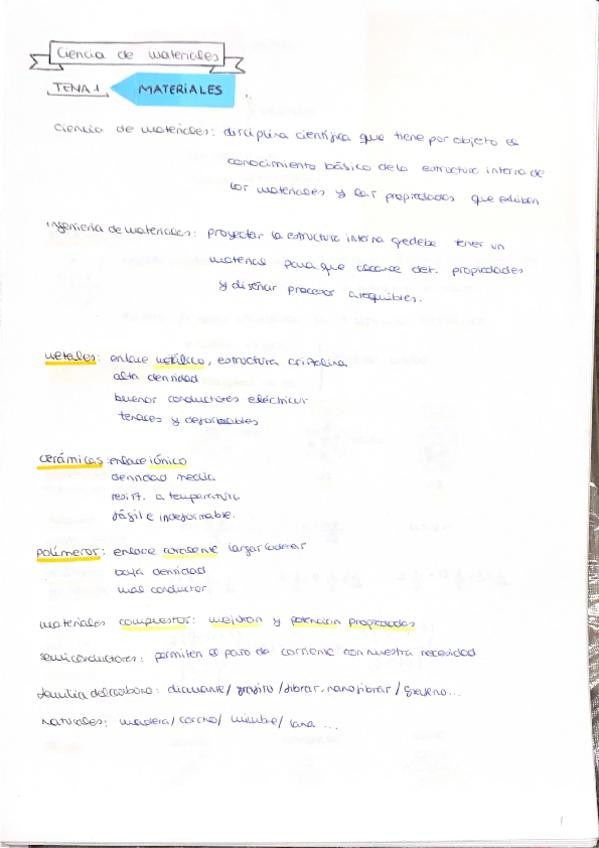 Ciencia de materiales
TEMA 1 MATERIALES
Ciencia de materiales: disciplina científica que tiene por objeto el
conocimiento básico de la estructura interna de
los materiales y las propiedades que exhiben
Ingeniería de materiales: proyectar la estructura interna q debe tener un
material para que alcance det. propiedades
y diseñar procesos asequibles.
Metales: enlace metálico, estructura cristalina
alta densidad
buenos conductores eléctricos
tenaces y deformables
cerámicas: enlace iónico
densidad media
resist. a temperatura
frágil e indeformable.
polímeros: enlace covalente largas cadenas
baja densidad
mal conductor
materiales compuestos: mejoran y potencian propiedades
semiconductores: permiten el paso de corriente con nuestra necesidad
familia del carbono: diamante / grafito / fibras, nanofibras / grafeno...
Naturales: madera / corcho / mimbre / lana ...
1